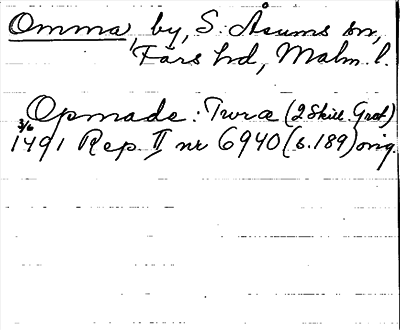 Omma, by, S. Åsums sn,
Färs hd, Malm. l.
Opmade: Twræ (2 Skill. Grot)
3/6
1491 Rep. II nr 6940 (s. 189) orig.